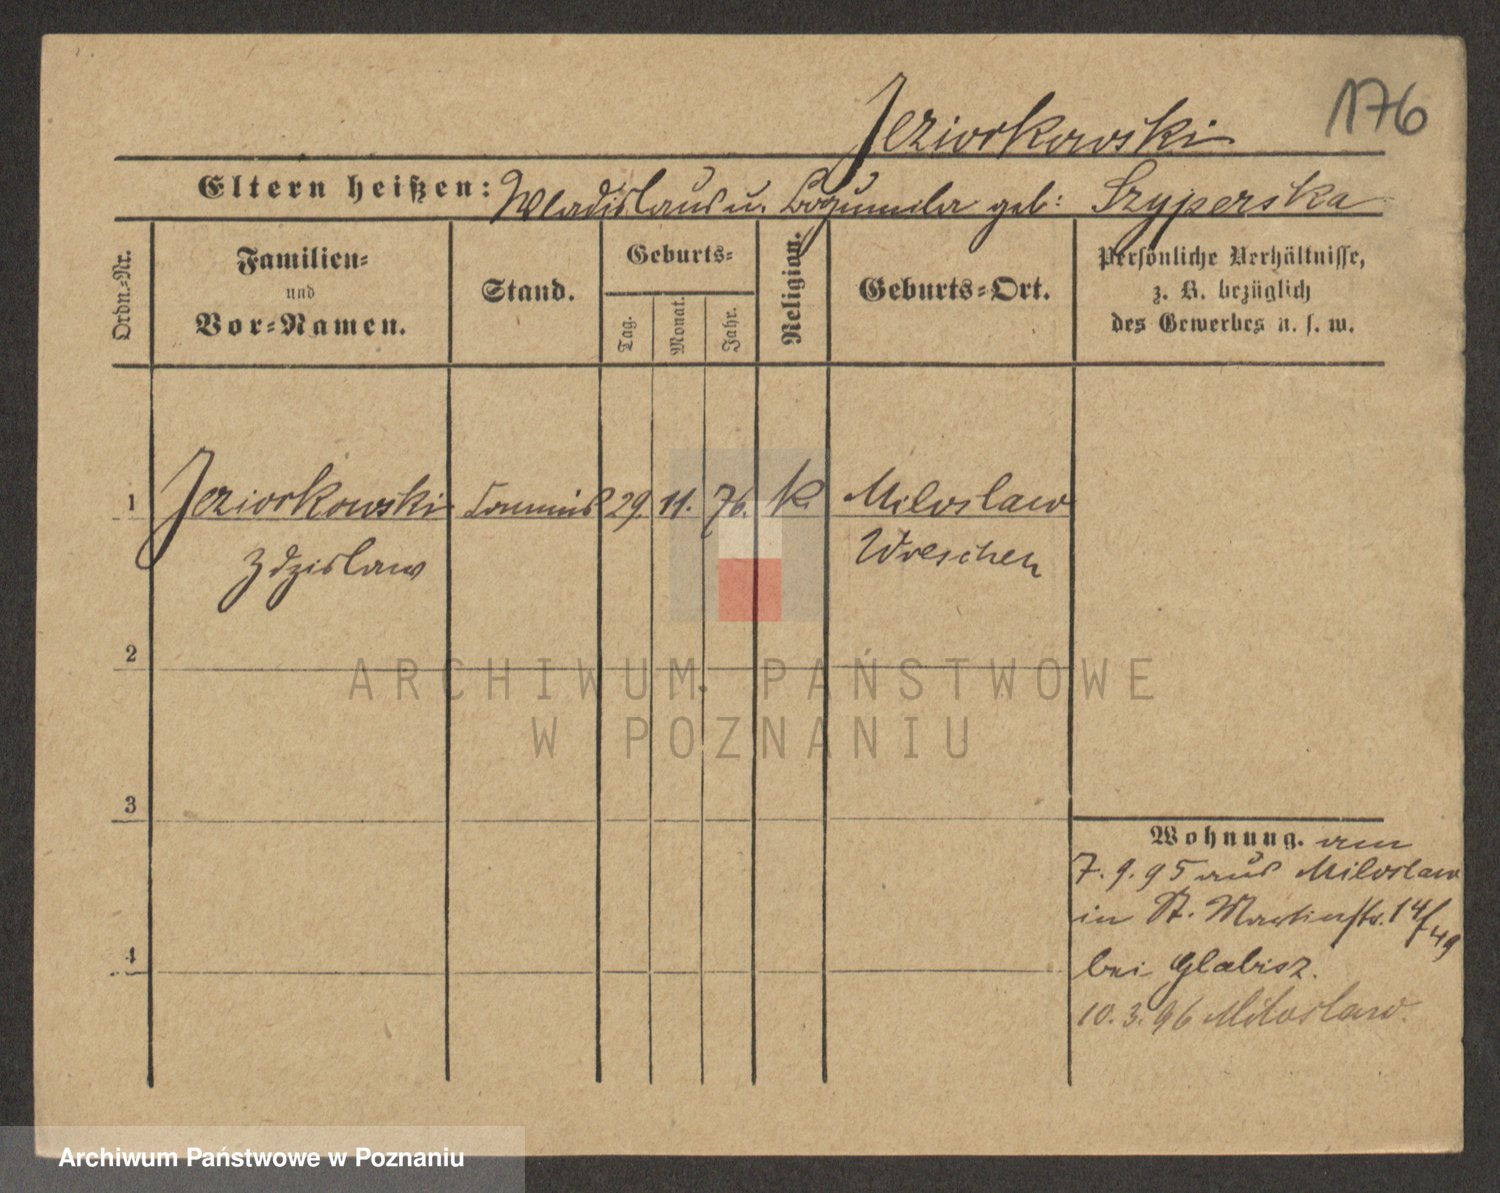 176
Jeziorkowski
Eltern heißen: Wladislaus u. Bogumila geb: Szyperska
Ordn.-Nr.
Familien-
und
Vor-Namen.
Stand.
Geburts-
Tag.
Monat.
Jahr.
Religion.
Geburts-Ort.
Persönliche Verhältnisse,
z. B. bezüglich
des Gewerbes u. s. w.
1 Jeziorkowski Commis 29. 11. 76. k. Miloslaw
Zdzislaw Wreschen
2
ARCHIWUM PAŃSTWOWE
W POZNANIU
3
Wohnung. am
7. 9. 95 aus Miloslaw
in St. Martinstr. 14/49
bei Glabisz.
4
10. 3. 96 Miloslaw.
Archiwum Państwowe w Poznaniu